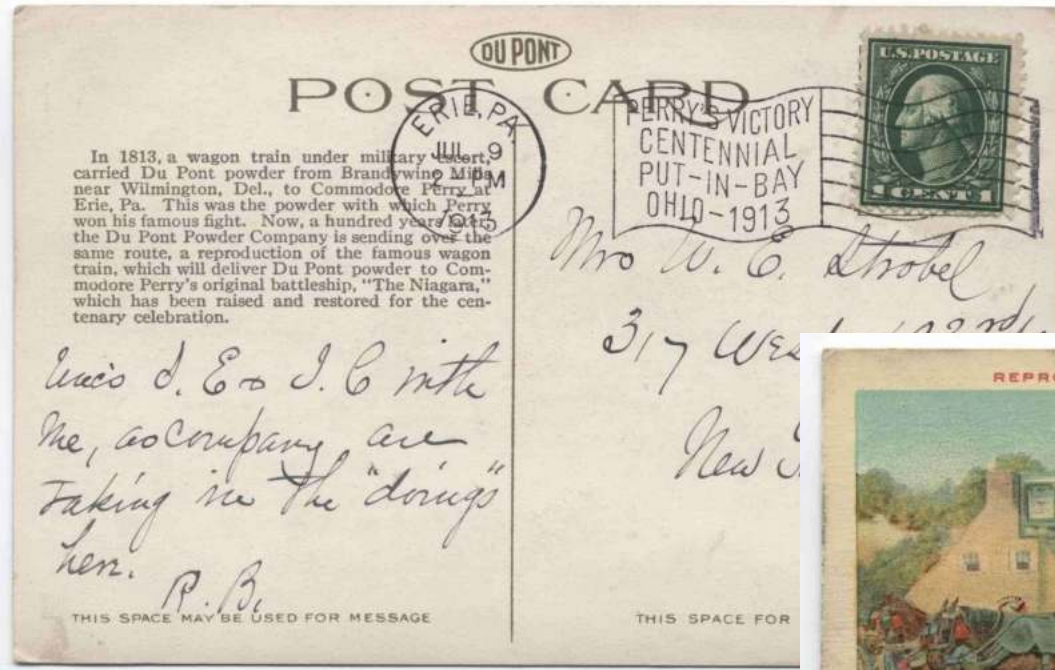 DU PONT
POST CARD
ERIE, PA.
JUL 9
2 - PM
1913
PERRY'S VICTORY
CENTENNIAL
PUT-IN-BAY
OHIO-1913
U.S. POSTAGE
1 CENT 1
In 1813, a wagon train under military escort,
carried Du Pont powder from Brandywine Mills
near Wilmington, Del., to Commodore Perry at
Erie, Pa. This was the powder with which Perry
won his famous fight. Now, a hundred years later,
the Du Pont Powder Company is sending over the
same route, a reproduction of the famous wagon
train, which will deliver Du Pont powder to Com-
modore Perry's original battleship, "The Niagara,"
which has been raised and restored for the cen-
tenary celebration.
J. E & J. C with
me, as company are
Taking in the "doings"
here.
R. B.
Mrs W. E. Strobel
317 Wes
New
THIS SPACE MAY BE USED FOR MESSAGE
THIS SPACE FOR
REPRO